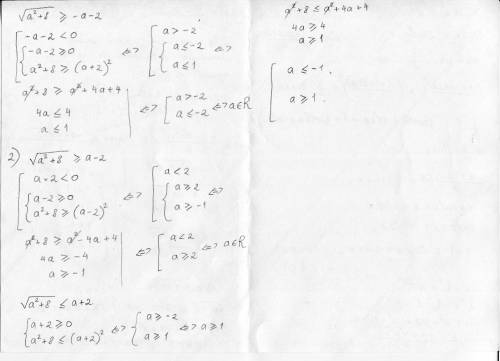 √(a²+8) ≥ -a-2
[ -a-2<0 ; { -a-2≥0 ; a²+8 ≥ (a+2)² ⇔ [ a>-2 ; { a≤-2 ; a≤1 ⇔
a²+8 ≥ a²+4a+4
4a ≤ 4
a ≤ 1
⇔ [ a>-2 ; a≤-2 ⇔ a∈R
2) √(a²+8) ≥ a-2
[ a-2<0 ; { a-2≥0 ; a²+8 ≥ (a-2)² ⇔ [ a<2 ; { a≥2 ; a≥-1 ⇔
a²+8 ≥ a²-4a+4
4a ≥ -4
a ≥ -1
⇔ [ a<2 ; a≥2 ⇔ a∈R
√(a²+8) ≤ a+2
{ a+2≥0 ; a²+8 ≤ (a+2)² ⇔ { a≥-2 ; a≥1 ⇔ a≥1
a²+8 ≤ a²+4a+4
4a ≥ 4
a ≥ 1
[ a ≤ -1
a ≥ 1